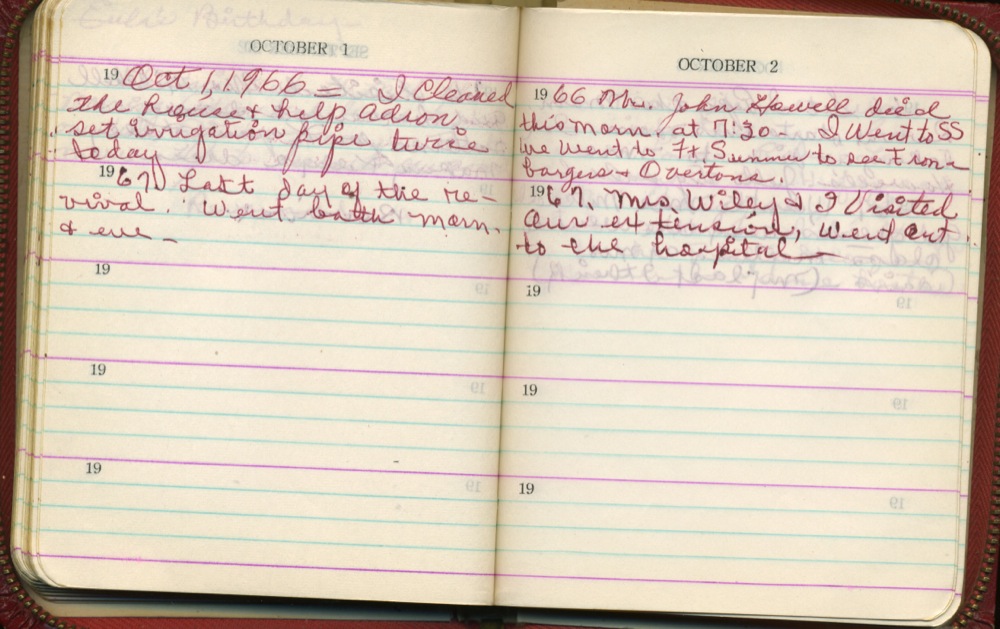 Birthday
OCTOBER 1
19 Oct 1, 1966 = I Cleaned
the house & help Adron
set irrigation pipe twice
today
1967. Last day of the re-
vival. Went both morn.
& eve -
19
19
19
OCTOBER 2
1966 Mr. John Howell died
this morn. at 7:30 - I Went to SS
we went to Ft. Sumner to see Iron-
bargers & Overtons.
1967. Mrs Wiley & I Visited
our extension, Went out
to the hospital -
19
19
19